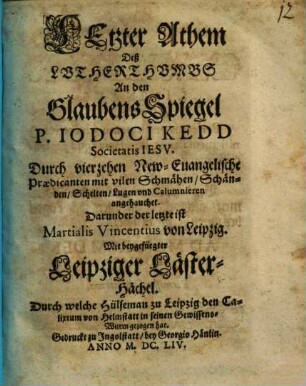 12
LEtzter Athem
Deß
LVTHERTHVMBS
An den
Glaubens Spiegel
P. IODOCI KEDD
Societatis IESV.
Durch vierzehen New-Euangelische
Prædicanten mit vilen Schmähen / Schän-
den / Schelten / Lugen vnd Calumnieren
angehauchet.
Darunder der letzte ist
Martialis Vincentius von Leipzig.
Mit beygefüegter
Leipziger Läster-
Hächel.
Durch welche Hülseman zu Leipzig den Ca-
lixtum von Helmstatt in seinen Gewissens-
Wurm gezogen hat.
Gedruckt zu Ingolstatt / bey Georgio Hänlin.
ANNO M. DC. LIV.